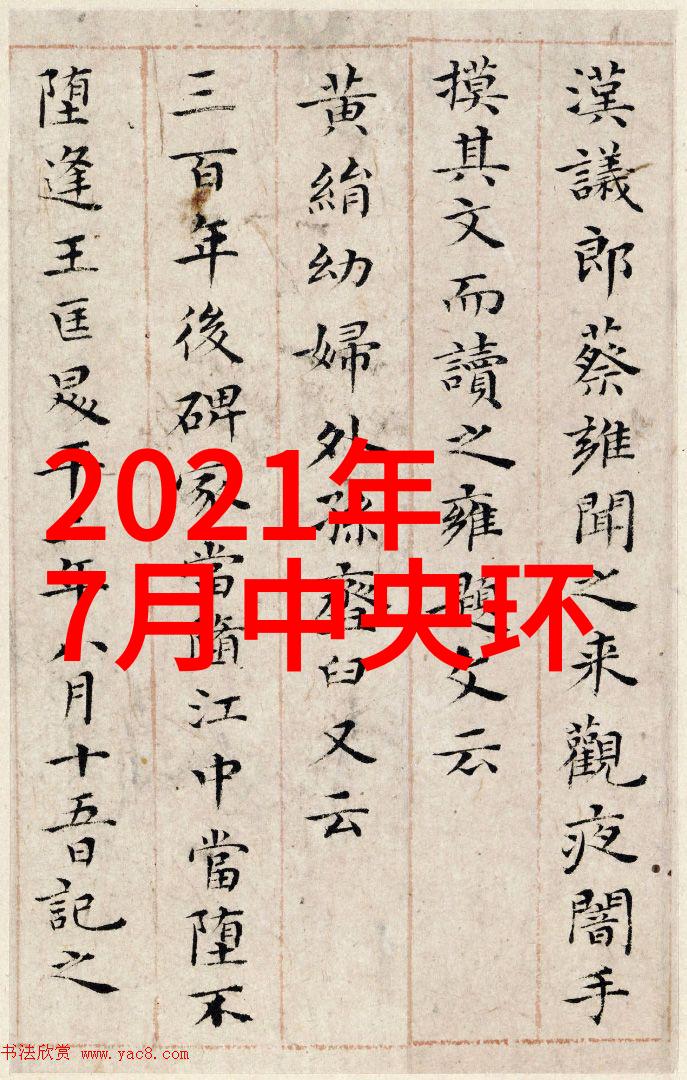 漢議郎蔡雍聞之来觀夜闇手
摸其文而讀之雍題文云
黄絹幼婦外孫齏臼又云
三百年後碑冢當墮江中當堕不
堕逢王匡昇平二年八月十五日記之
2021年
7月中央环
书法欣赏 www.yac8.com